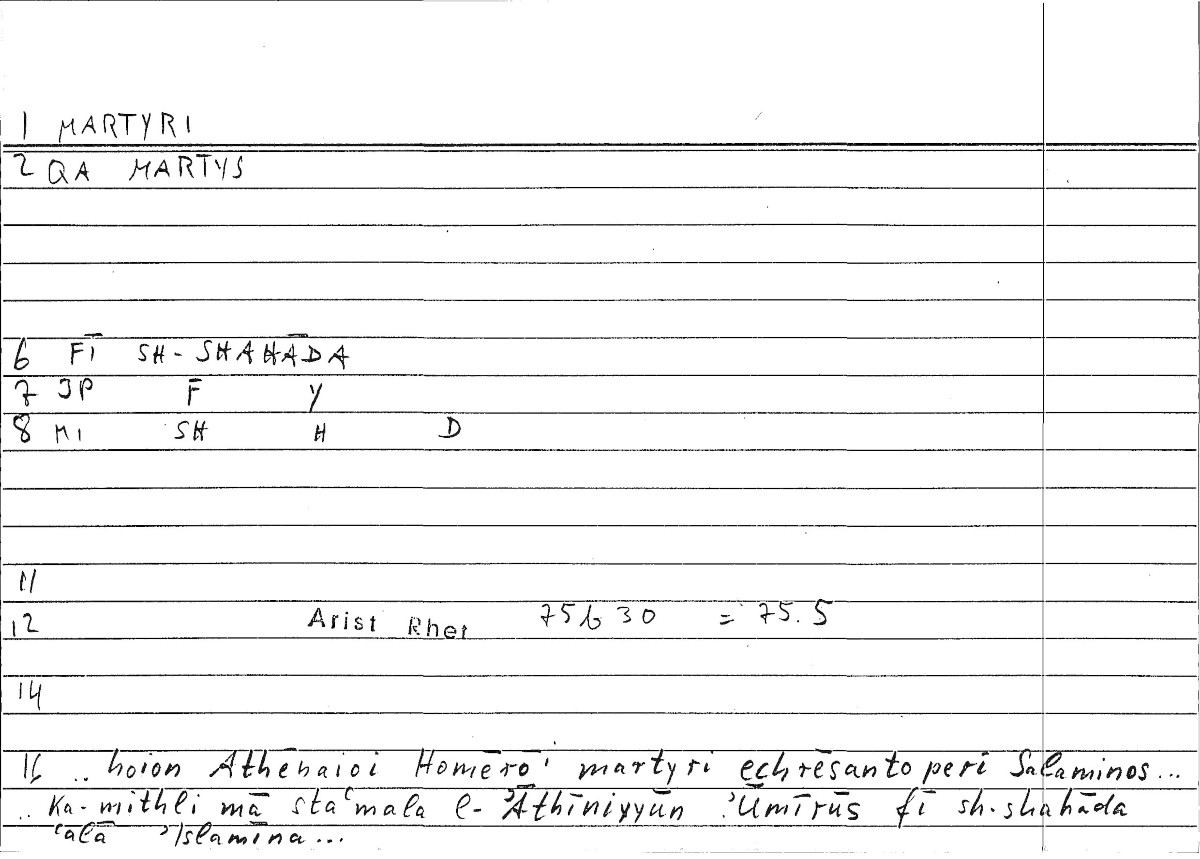 1 MARTYRI
2 QA MARTYS
6 FĪ SH-SHAHĀDA
7 JP F Y
8 MI SH H D
11
12 Arist Rhet 75b30 = 75.5
14
16 .. hoion Athēnaioi Homērō' martyri echrēsanto peri Salaminos...
.. Ka-mithli mā staʿmala l-ʾĀthīniyyūn ʾŪmīrūs fī sh-shahāda
ʿalā ʾIslamīna...